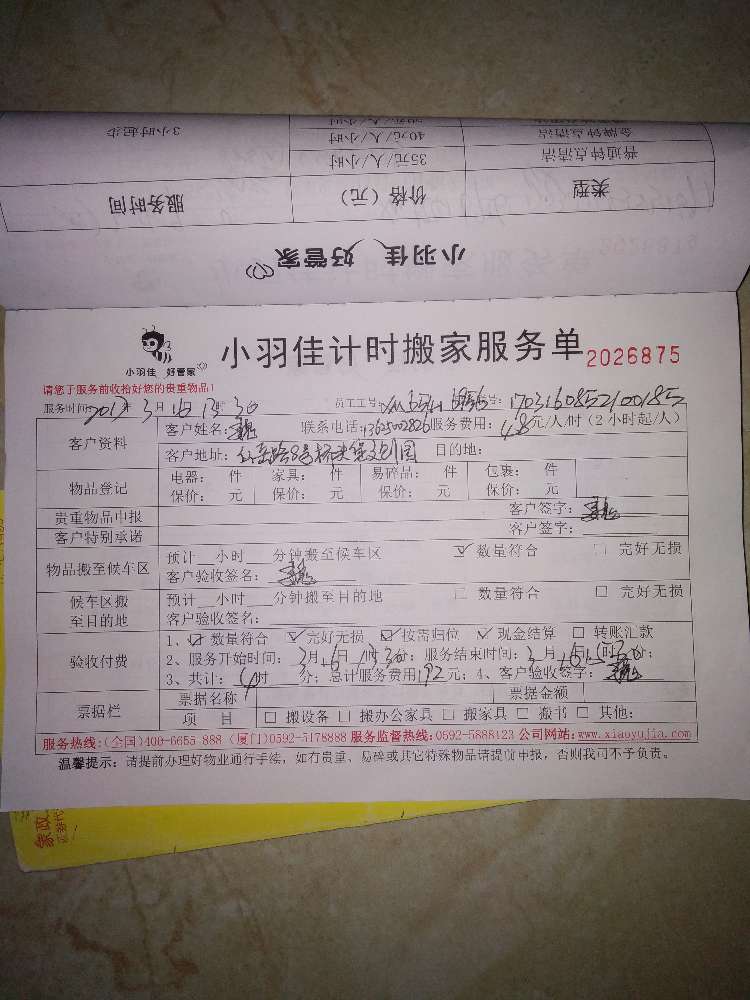 3小时起步
40元/人/小时
金牌钟点清洁
35元/人/小时
普通钟点清洁
服务时间
价格（元）
类型
小羽佳 好管家
小羽佳 好管家
小羽佳计时搬家服务单 2026875
请您于服务前收拾好您的贵重物品！
服务时间: 2017年3月16 13时30 员工工号: 1703160852100185
客户资料
客户姓名: 联系电话: 服务费用: 48元/人/时（2小时起/人）
客户地址: 目的地:
物品登记
电器: 件 家具: 件 易碎品: 件 包裹: 件
保价: 元 保价: 元 保价: 元 保价: 元
贵重物品申报 客户签字:
客户特别承诺 客户签字:
物品搬至候车区
预计__小时__分钟搬至候车区 ☑ 数量符合 □ 完好无损
客户验收签名:
候车区搬至目的地
预计__小时__分钟搬至目的地 □ 数量符合 □ 完好无损
客户验收签名:
验收付费
1、☑ 数量符合 ☑ 完好无损 ☑ 按需归位 ☑ 现金结算 □ 转账汇款
2、服务开始时间: 3月16日13时30分; 服务结束时间: 3月16日15时30分;
3、共计: 4时 分; 总计服务费用192元; 4、客户验收签字:
票据栏
票据名称 票据金额
项 目 □ 搬设备 □ 搬办公家具 □ 搬家具 □ 搬书 □ 其他:
服务热线:(全国)400-6655-888 (厦门)0592-5178888 服务监督热线:0592-5888123 公司网站:www.xiaoyujia.com
温馨提示: 请提前办理好物业通行手续，如有贵重、易碎或其它特殊物品请提前申报，否则我司不予负责。